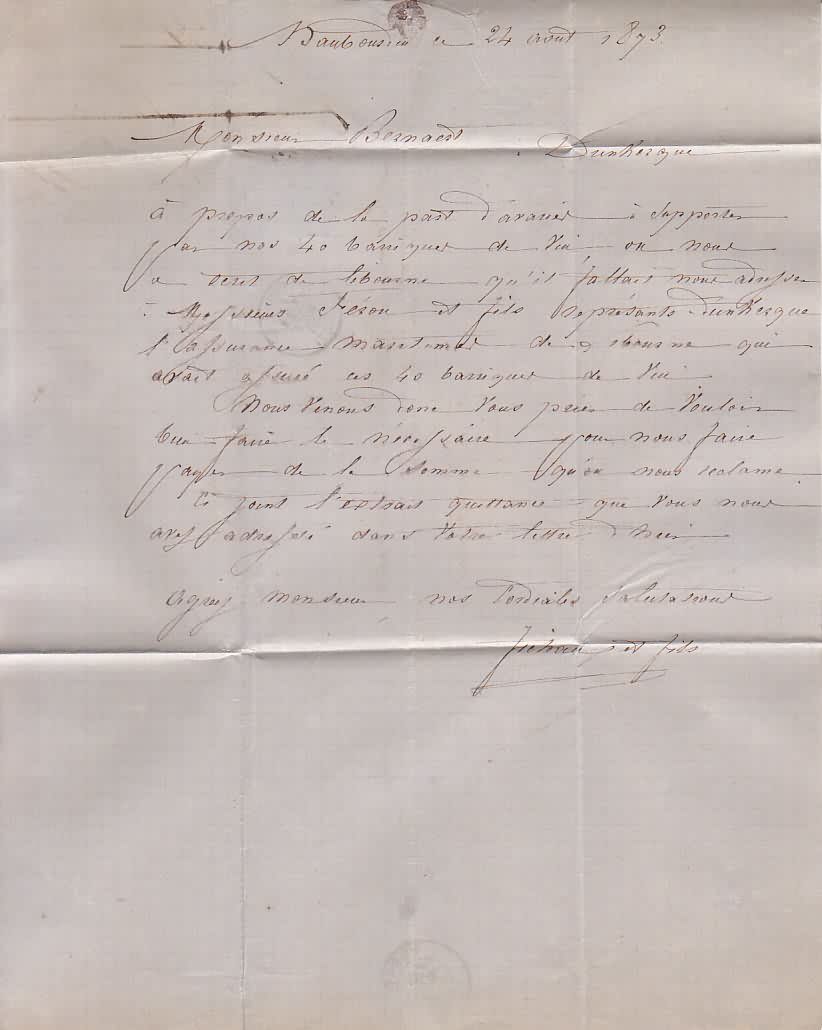 le 24 août 1873.
Monsieur Bernaert Dunkerque
à propos de la part d'avaries à supporter
par nos 40 barriques de Vin on nous
a écrit de libourne qu'il fallait nous adresser
à Messieurs et fils représentants Dunkerque
l'assurance Maritime de libourne qui
avait assuré ces 40 barriques de Vin
Nous Venons donc Vous prier de Vouloir
bien faire le nécessaire pour nous faire
payer de la somme qu'on nous reclame
Ci joint l'extrait quittance que Vous nous
avez adressé dans Votre lettre d'hier
Agréez monsieur nos Cordiales Salutations
et fils